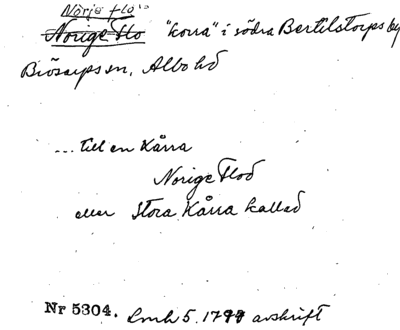 Nörje flo
Norige Flo "korra" i södra Bertilstorps by
Brösarps sn, Albo hd
... till en Kårra
Norige Flod
eller Stora Kårra kallad
Nr 5304. Lmh 5. 1799 avskrift